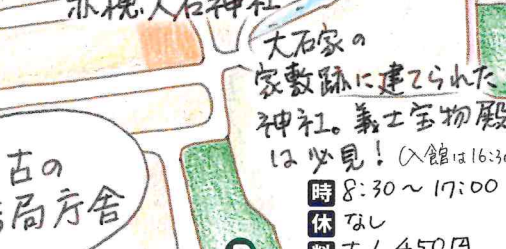 赤穂大石神社
大石家の
家敷跡に建てられた
神社。義士宝物殿
は必見！（入館は16:30
時 8:30～17:00
休 なし
料 大人450円
古の
局庁舎